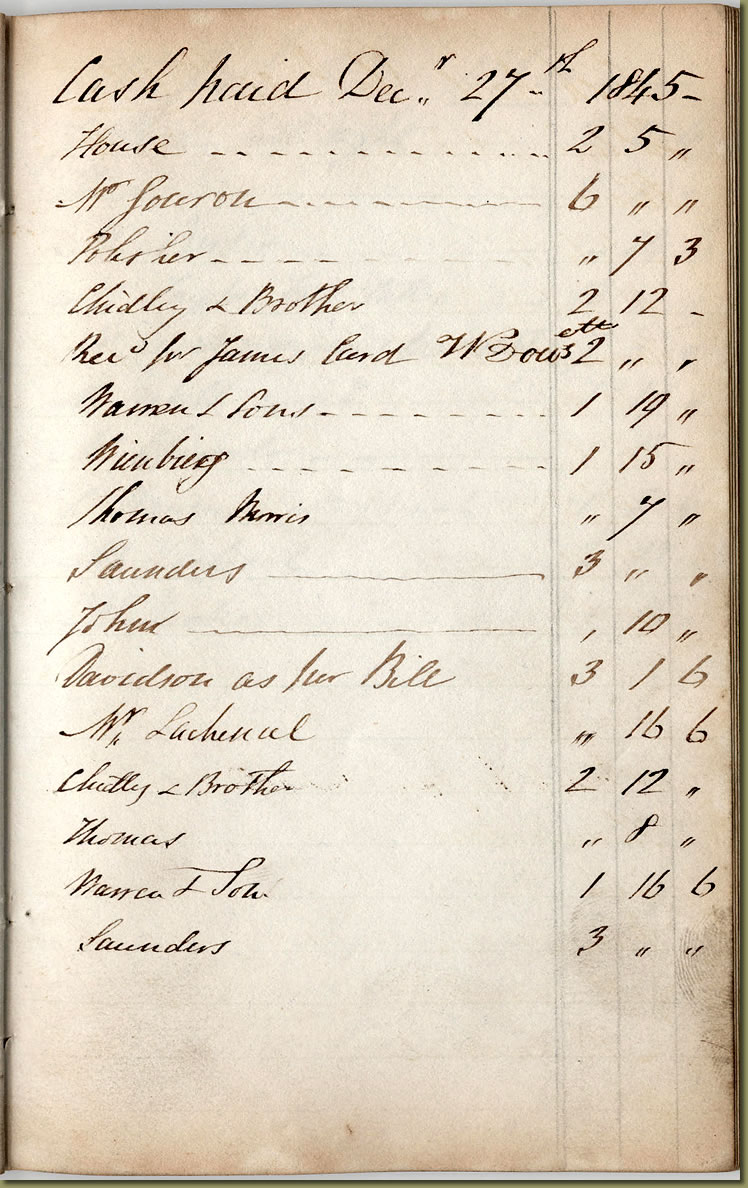 Cash paid Decr. 27th 1845-
House 2 5 "
Mr Gouron 6 " "
Polisher " 7 3
Chidley & Brother 2 12 -
Recd for James Card W Dowsett 2 " "
Warren & Sons 1 19 "
Wienbieg 1 15 "
Thomas Morris " 7 "
Saunders 3 " "
John , 10 "
Davidson as per Bill 3 1 6
Mr. Lachenal " 16 6
Chidley & Brother 2 12 "
Thomas " 8 "
Warren & Son 1 16 6
Saunders 3 " "